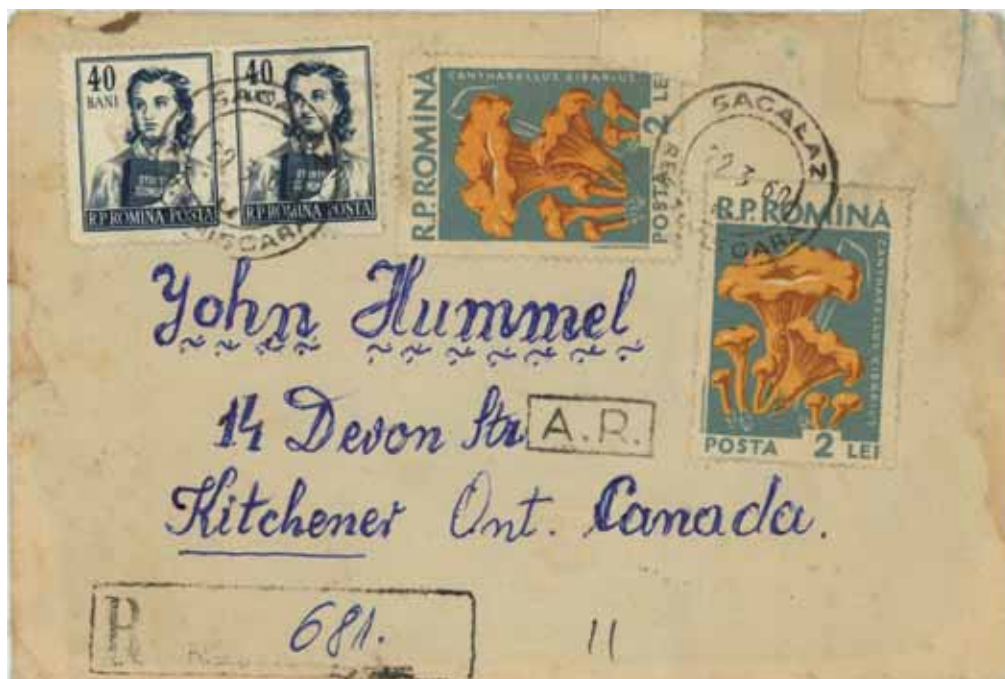 40
BANI
R.P.ROMINA POSTA
40
R.P.ROMINA POSTA
R.P.ROMINA
CANTHARELLUS CIBARIUS
POSTA 2 LEI
SACALAZ
R.P.ROMINA
CANTHARELLUS CIBARIUS
POSTA 2 LEI
Yohn Hummel
14 Devon Str
A.R.
Kitchener Ont. Canada.
R
681.
11